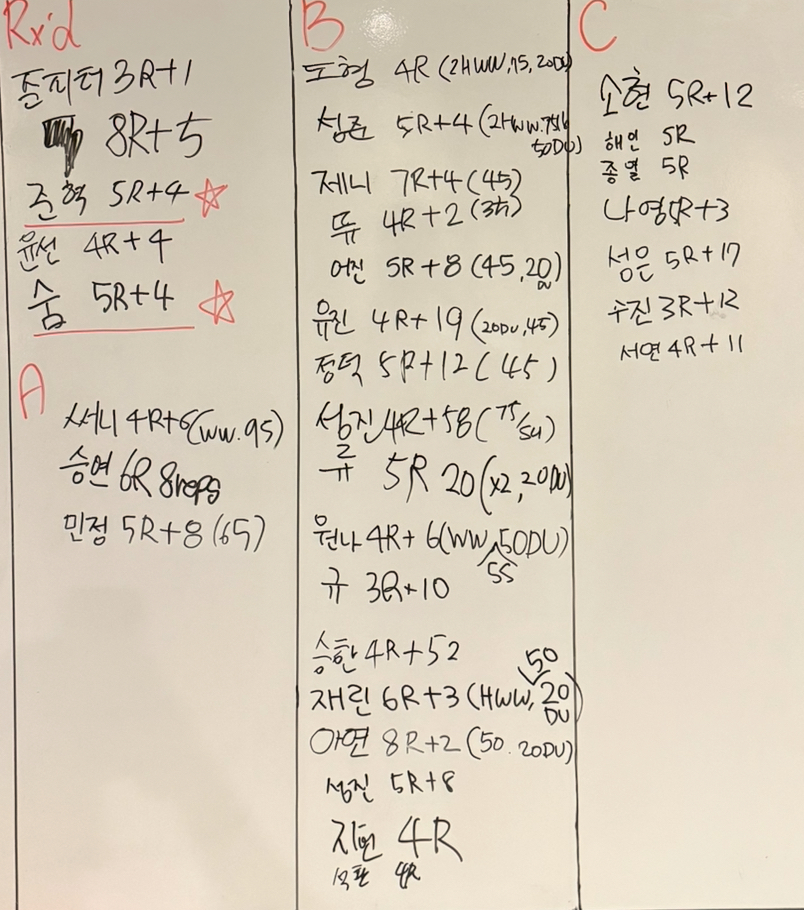 Rx'd
줄피터 3R+1
8R+5
준혁 5R+4
윤선 4R+4
숨 5R+4
A
써니 4R+6(WW.95)
승연 6R 8reps
민정 5R+8(65)
B
도형 4R(2HWW,75,20DU)
성준 5R+4(2HWW.75lb
50DU)
제니 7R+4(45)
뜌 4R+2
어진 5R+8(45,20)
DU
유진 4R+19(20DU,45)
정덕 5R+12(45)
성진 4R+58(75/SU)
류 5R 20(x2,20DU)
원나 4R+6(WW,50DU)
55
규 3R+10
승한 4R+52
50
재린 6R+3(HWW,20
DU)
아연 8R+2(50.20DU)
성진 5R+8
지현 4R
4R
C
소현 5R+12
해인 5R
종열 5R
나영 5R+3
성은 5R+17
수진 3R+12
서연 4R+11